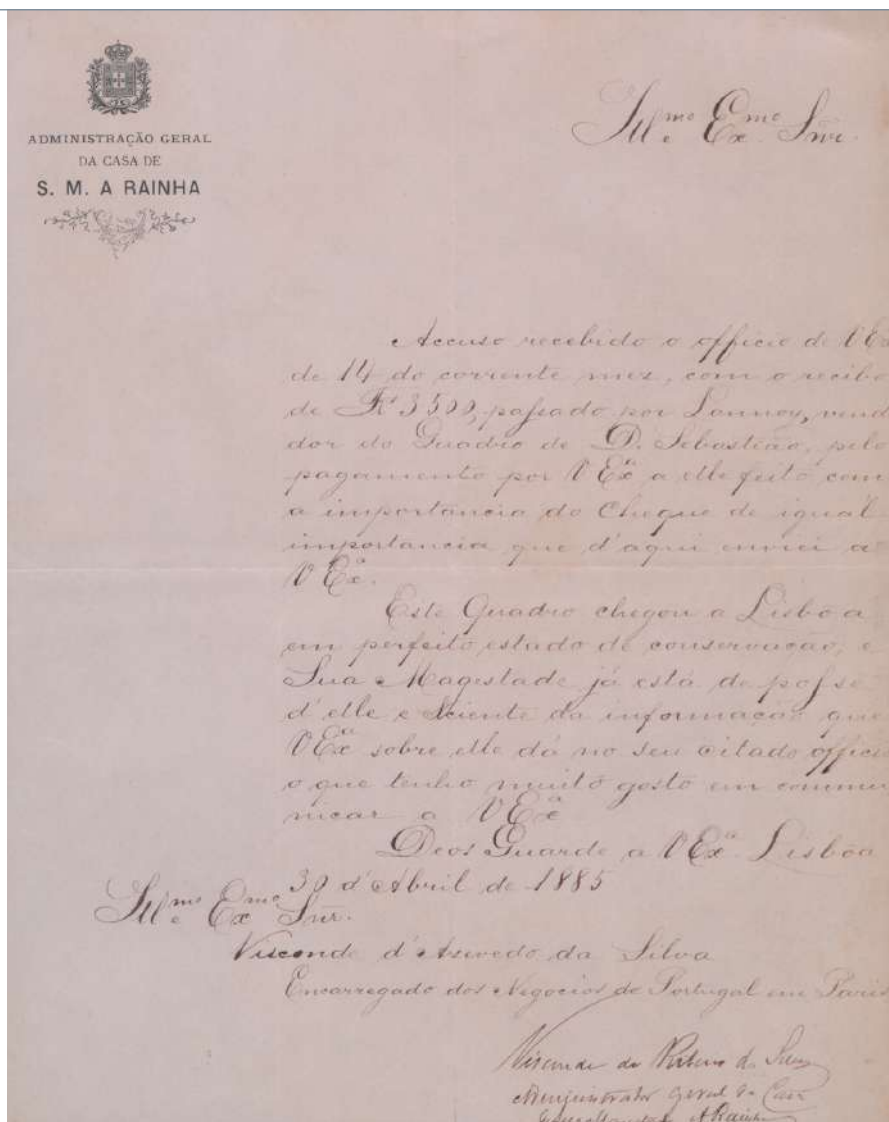 ADMINISTRAÇÃO GERAL
DA CASA DE
S. M. A RAINHA
Ill.mo e Ex.mo Snr.
Accuso recebido o officio de V Ex
de 14 do corrente mez, com o recibo
de Fr 3500, passado por Lannoy, vend
dor do Quadro de D. Sebastião, pelo
pagamento por V Ex.a a elle feito com
a importancia do Cheque de igual
importancia que d'aqui enviei a
V Ex.a.
Este Quadro chegou a Lisboa
em perfeito estado de conservação, e
Sua Magestade já está de posse
d'elle e sciente da informação que
V Ex.a sobre elle dá no seu citado officio
o que tenho muito gosto em commu
nicar a V Ex.a
Deos Guarde a V Ex.a Lisboa
30 d'Abril de 1885
Ill.mo e Ex.mo Snr.
Visconde d'Azevedo da Silva
Encarregado dos Negocios de Portugal em Paris
Visconde da Ribeira do
Administrador Geral da Casa
A Rainha